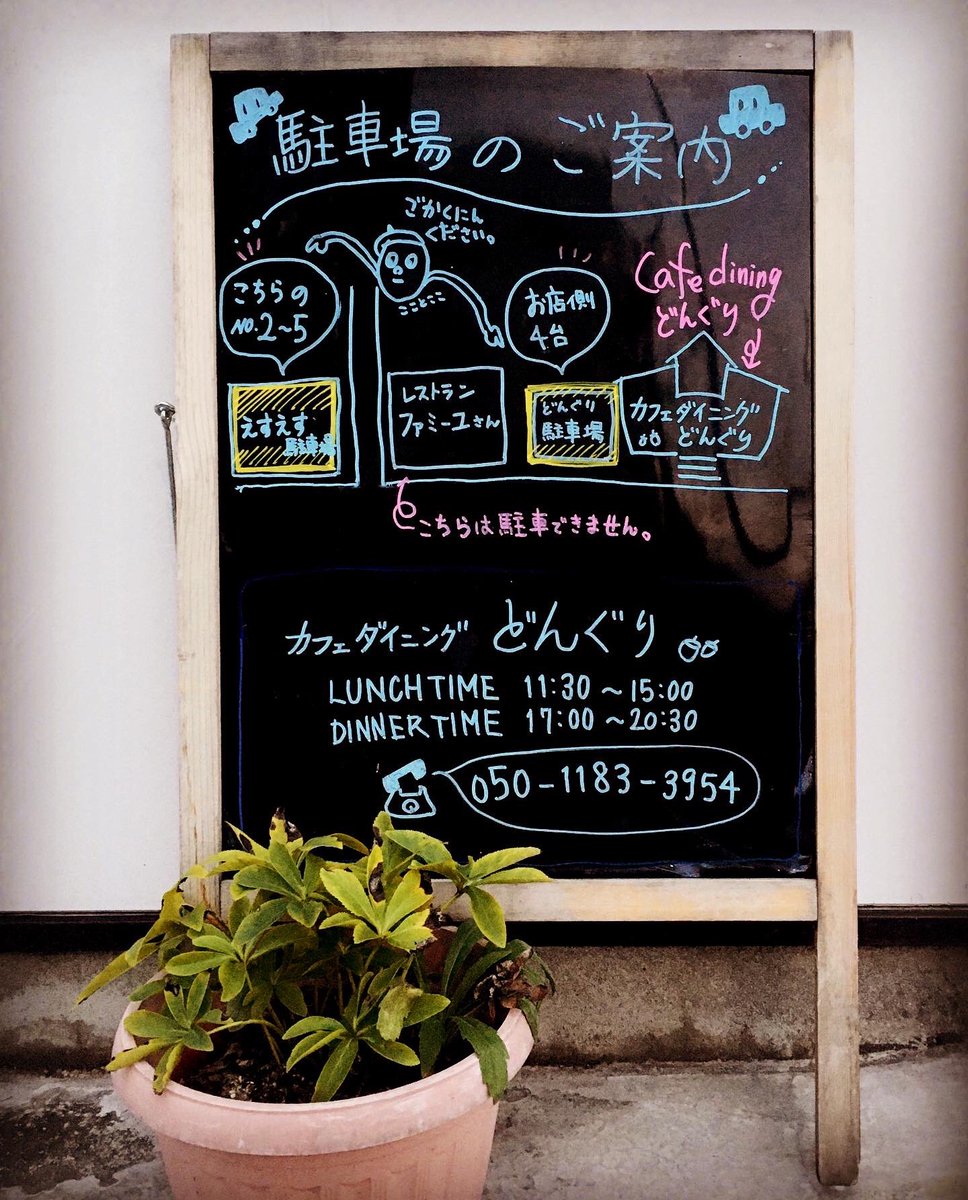 駐車場のご案内
ごかくにん
ください。
 こことここ
こちらの
NO.2～5
お店側
4台
Cafe dining
どんぐり
えすえす
駐車場
レストラン
ファミーユさん
どんぐり
駐車場
カフェダイニング
どんぐり
こちらは駐車できません。
カフェダイニング どんぐり
LUNCH TIME 11:30～15:00
DINNER TIME 17:00～20:30
050-1183-3954